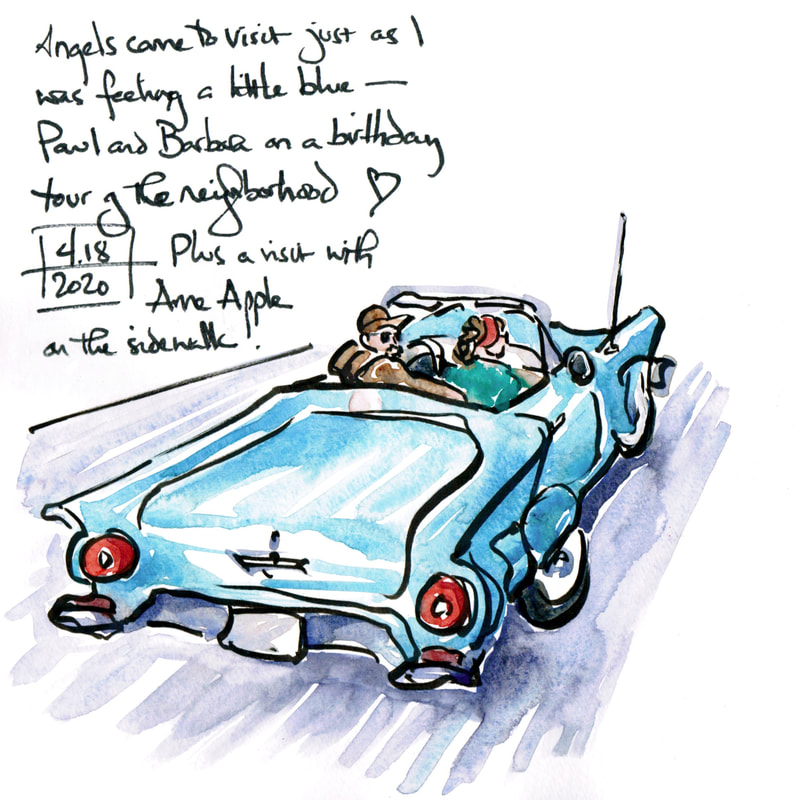 Angels came to visit just as I
was feeling a little blue —
Paul and Barbara on a birthday
tour of the neighborhood ♡
4.18
2020
Plus a visit with
Anne Apple
on the sidewalk!